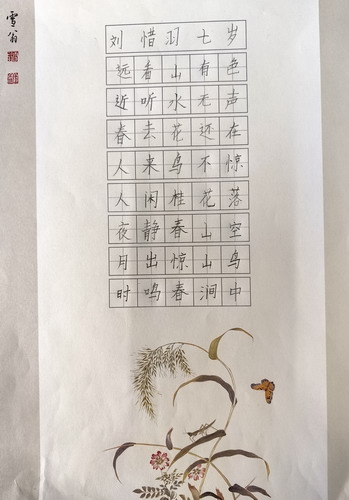 雪翁
刘惜羽七岁
远看山有色
近听水无声
春去花还在
人来鸟不惊
人闲桂花落
夜静春山空
月出惊山鸟
时鸣春涧中